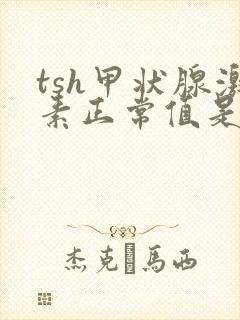 tsh甲状腺激
素正常值是
杰克馬西